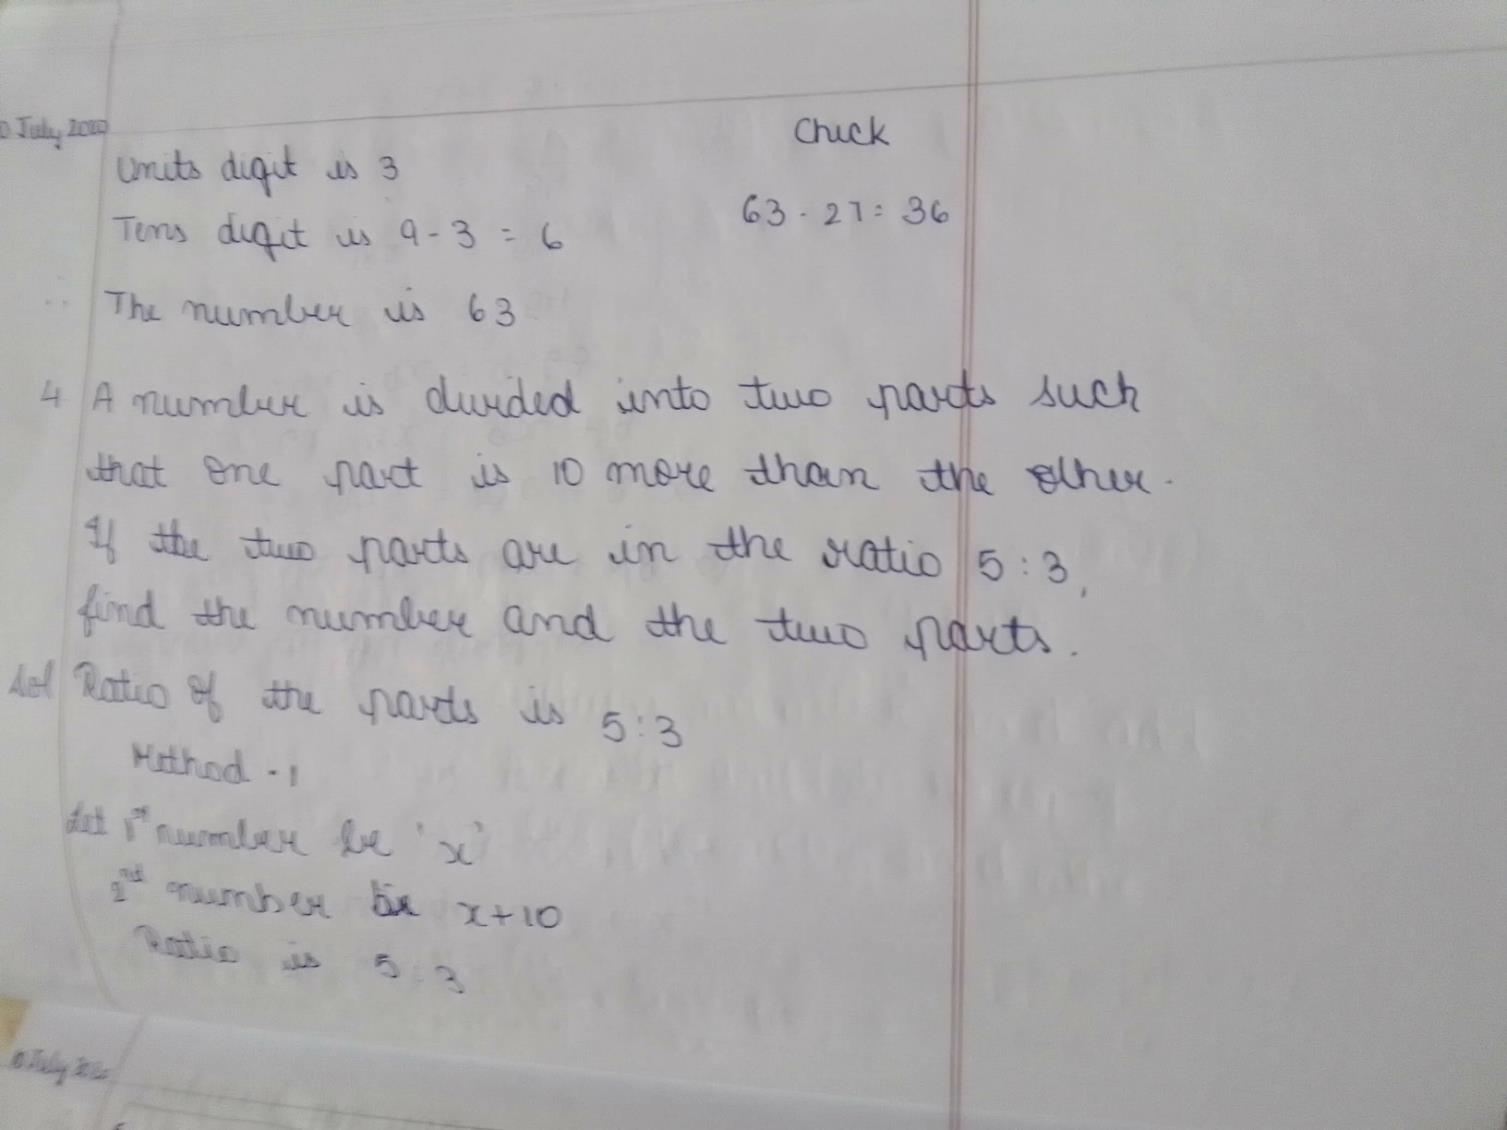 July 2020
Units digit is 3
Tens digit is 9 - 3 = 6
∴ The number is 63
Check
63 - 27 = 36
4 A number is divided into two parts such
that one part is 10 more than the other.
If the two parts are in the ratio 5 : 3,
find the number and the two parts.
Sol Ratio of the parts is 5 : 3
Method - 1
Let 1st number be 'x'
2nd number be x + 10
Ratio is 5 : 3
July 2020